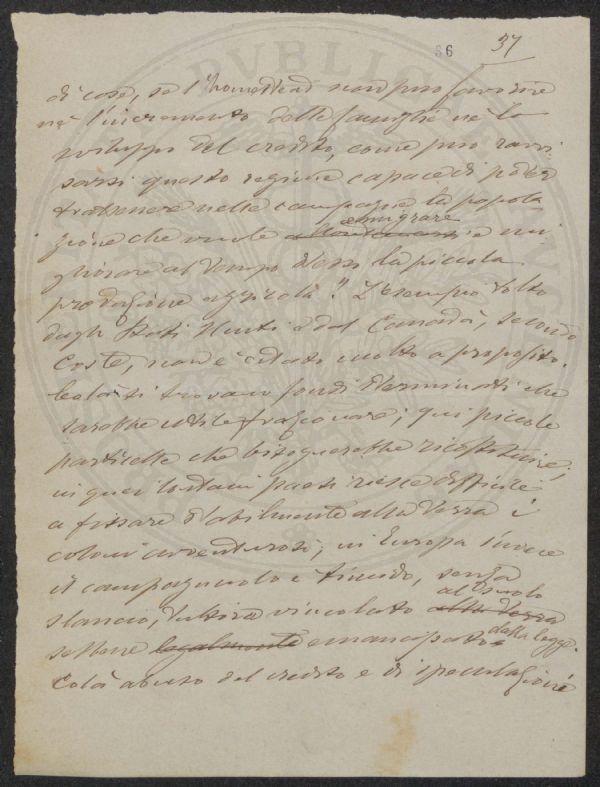 86 37
di cose, se l'homestead non può favorire
nè l'incremento delle famiglie nè lo
sviluppo del credito, come può ravvi
sarsi questo regime capace di poter
trattenere nelle campagne la popola
zione che vuole emigrare e mi
gliorare al tempo stesso la piccola
produzione agricola? L'esempio tolto
dagli Stati Uniti e dal Canadà, secondo
Coste, non è citato molto a proposito.
Colà si trovano fondi sterminati che
sarebbe utile frazionare; qui piccole
particelle che bisognerebbe ricostituire;
in quei lontani paesi riesce difficile
a fissare stabilmente alla terra i
coloni avventurosi; in Europa invece
il campagnuolo è timido, senza
slancio, tuttora vincolato alla terra al suolo
sebbene legalmente emancipato dalla legge.
Colà abuso del credito e di speculazione